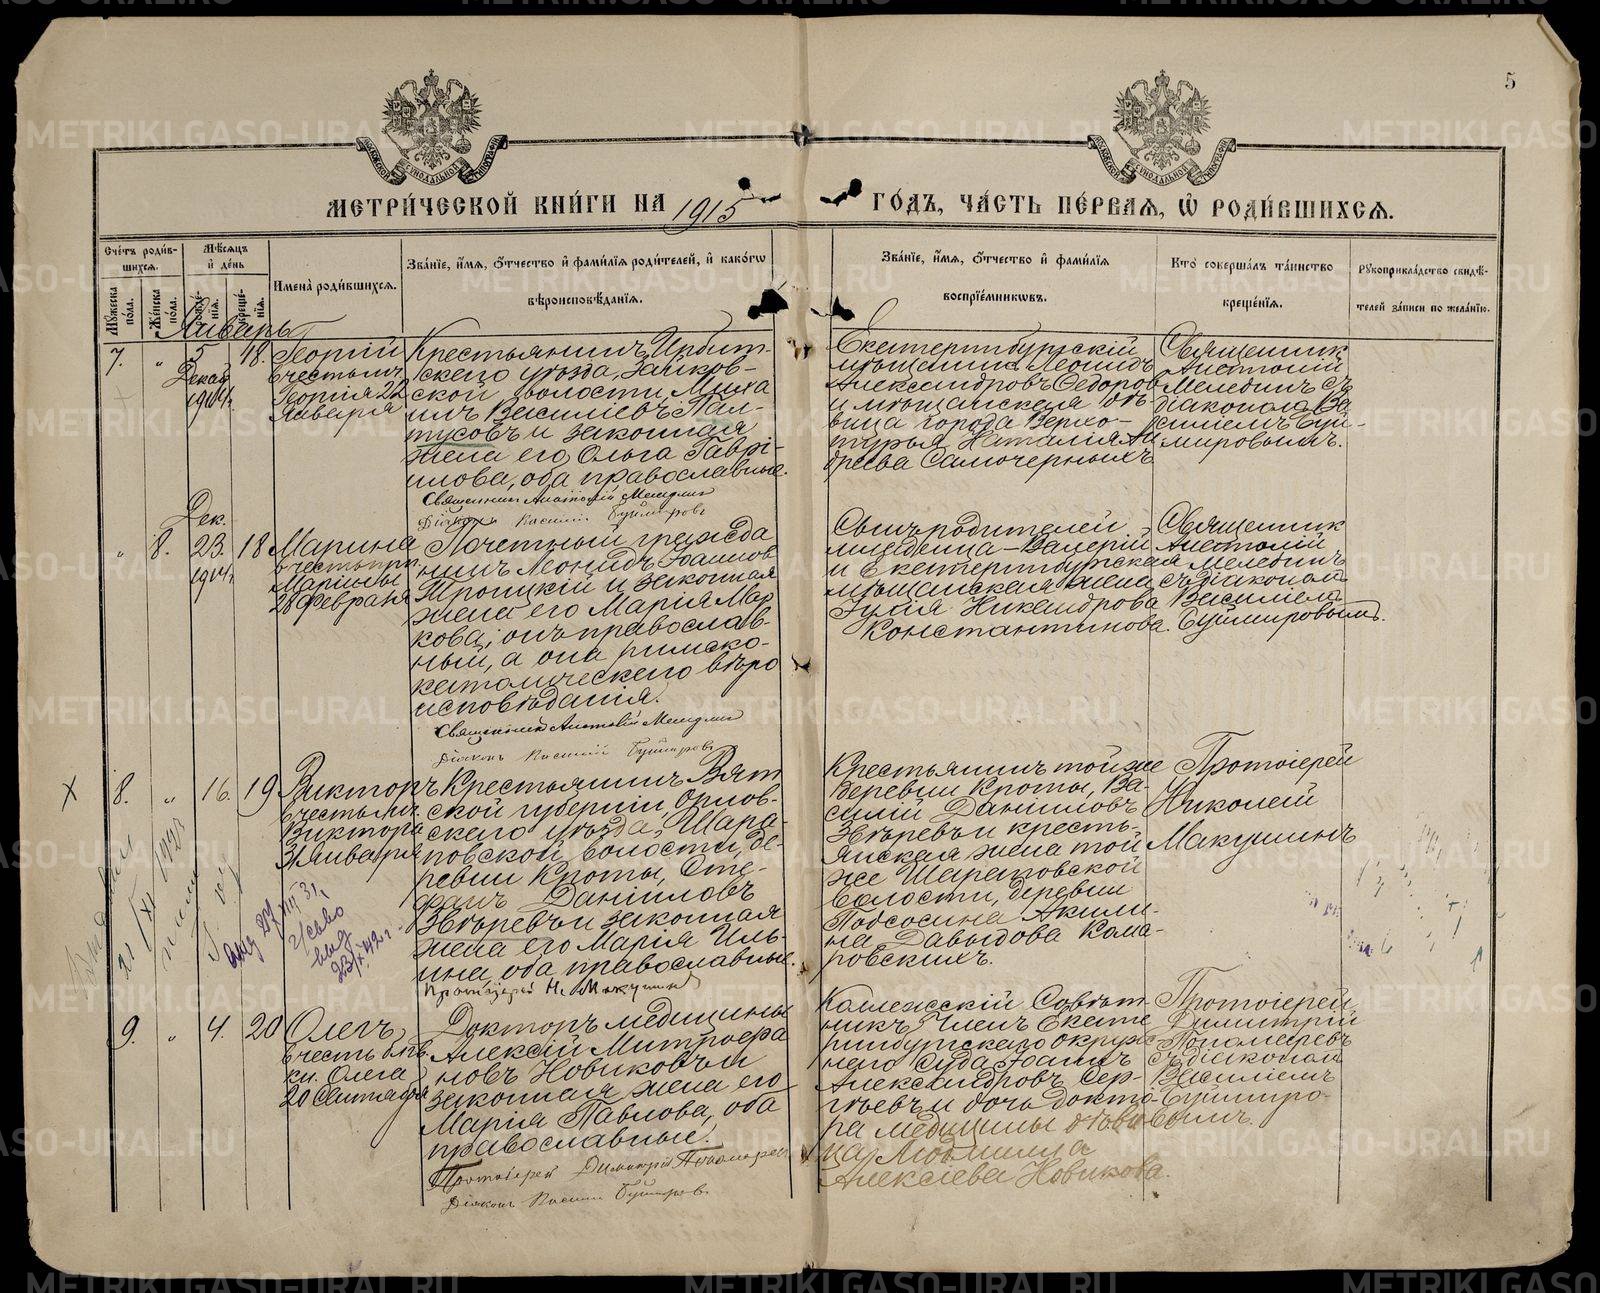 5
МЕТРИ́ЧЕСКОЙ КНИ́ГИ НА 1915
ГО́ДЪ, ЧА́СТЬ ПЕ́РВАЯ, Ѽ РОДИ́ВШИХСЯ.
Сче́тъ роди́в-
шихся.
Му́жеска по́ла.
Же́нска по́ла.
Мѣ́сяцъ
и҆ де́нь
Имена̀ роди́вшихся.
Зва́нїе, и҆́мя, ѻ҆́тчество и҆ фами́лїя роди́телей, и҆ како́гѡ
вѣроисповѣ́данїя.
Зва́нїе, и҆́мя, ѻ҆́тчество и҆ фами́лїя
воспрїе́мникѡвъ.
Кто̀ соверша́лъ та́инство
креще́нїя.
Рꙋкоприкла́дство свидѣ́-
телей за́писи по жела́нїю.
Январь
7.
"
5
Декаб.
1914г.
18.
Георгій
въ честь муч.
Георгія 22
Января
Крестьянинъ Ирбит-
скаго уѣзда, Зайков-
ской волости, Миха
илъ Василіевъ Пал-
тусовъ и законная
жена его Ольга Гаврі-
илова, оба православные.
Священникъ Анатолій Меледин
Діаконъ Василій Буймировъ
Екатеринбургскій
мѣщанинъ Леонидъ
Александровъ Ѳедоровъ
и мѣщанская дѣ-
вица города Верхо-
турья Наталія Ан
дреева Самочерныхъ
Священник
Анатолій
Мелединъ съ
діакономъ Ва
силіемъ Буй-
мировымъ.
"
8.
Дек.
23.
1914г.
18
Марина
въ честь прп.
Марины
28 февраля
Почетный гражда
нинъ Леонидъ Іоаннов
Троицкій и законная
жена его Марія Мар
кова; онъ православ-
ный, а она римско-
католическаго вѣро
исповѣданія.
Священникъ Анатолій Меледин
Діаконъ Василій Буймировъ
Сынъ родителей
младенца - Валерій
и Екатеринбургская
мѣщанская жена
Юлія Никандрова
Константинова.
Священник
Анатолій
Мелединъ
съ діакономъ
Василіемъ
Буймировымъ.
X
8.
"
16.
19
Викторъ
въ честь мч.
Виктора
31 января
Крестьянинъ Вят
ской губерніи, Орлов-
скаго уѣзда, Шара-
повской волости, де-
ревни Кроты, Сте-
фанъ Даніиловъ
Звѣревъ и законная
жена его Марія Иль-
ина, оба православные.
Протоіерей Н. Макушинъ
Крестьянинъ той же
деревни Кроты, Ва-
силій Даніиловъ
Звѣревъ и кресть-
янская жена той
же Шараповской
волости, деревни
Подсосина Акили-
на Давыдова Кома-
ровскихъ.
Протоіерей
Николай
Макушинъ
23/X 42 г.
9.
"
4.
20
Олегъ
въ честь блв.
кн. Олега
20 Сентября
Докторъ медицины
Алексій Митрофа
новъ Новиковъ и
законная жена его
Марія Павлова, оба
православные.
Протоіерей Димитрій Пономарев
Діаконъ Василій Буймировъ
Коллежскій Совѣт-
никъ, Членъ Екате
ринбургскаго окруж
наго Суда Іоаннъ
Александровъ Сер-
гѣевъ и дочь докто-
ра медицины дѣви
ца Людмила
Алексіева Новикова.
Протоіерей
Димитрій
Пономаревъ
съ діакономъ
Василіемъ
Буймиро-
вымъ.